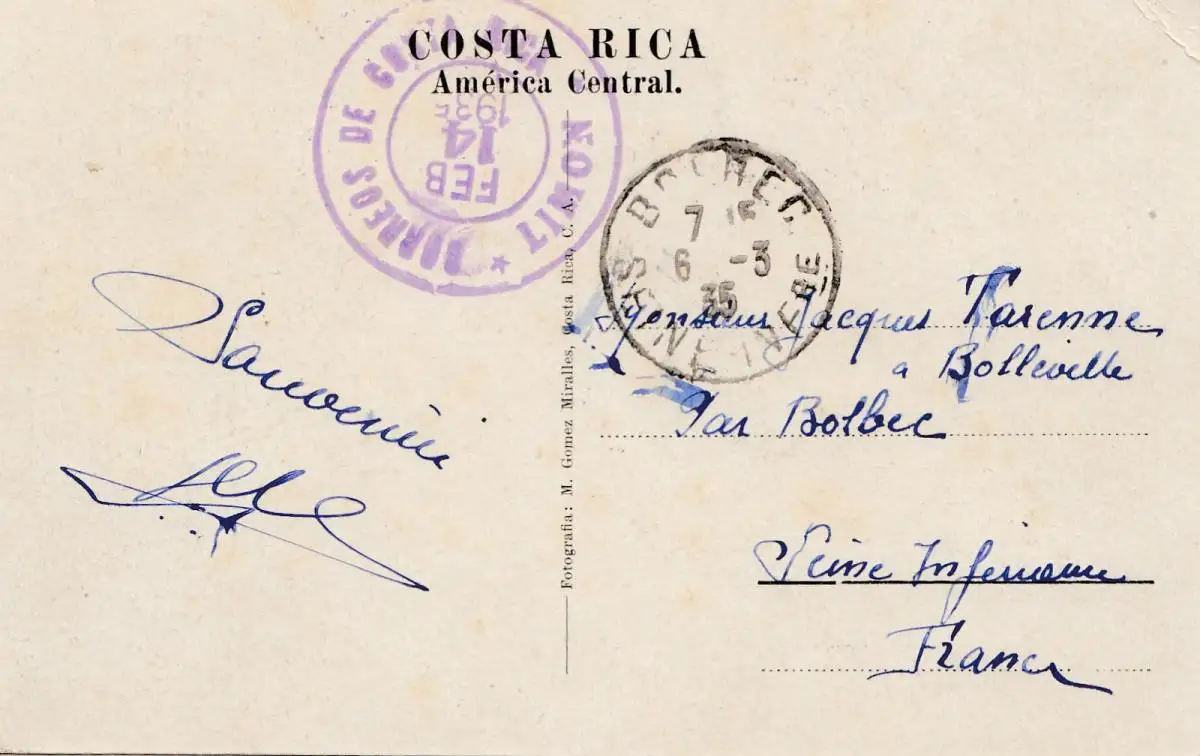 COSTA RICA
América Central.
CORREOS DE COSTA RICA
★ LIMON
FEB
14
193
BOLBEC
7
6 -3
35
SEINE INFRE
Souvenir
Monsieur Jacques Varenne
a Bolleville
Par Bolbec
Seine Inferieure
France
Fotografia: M. Gomez Miralles, Costa Rica, C. A.